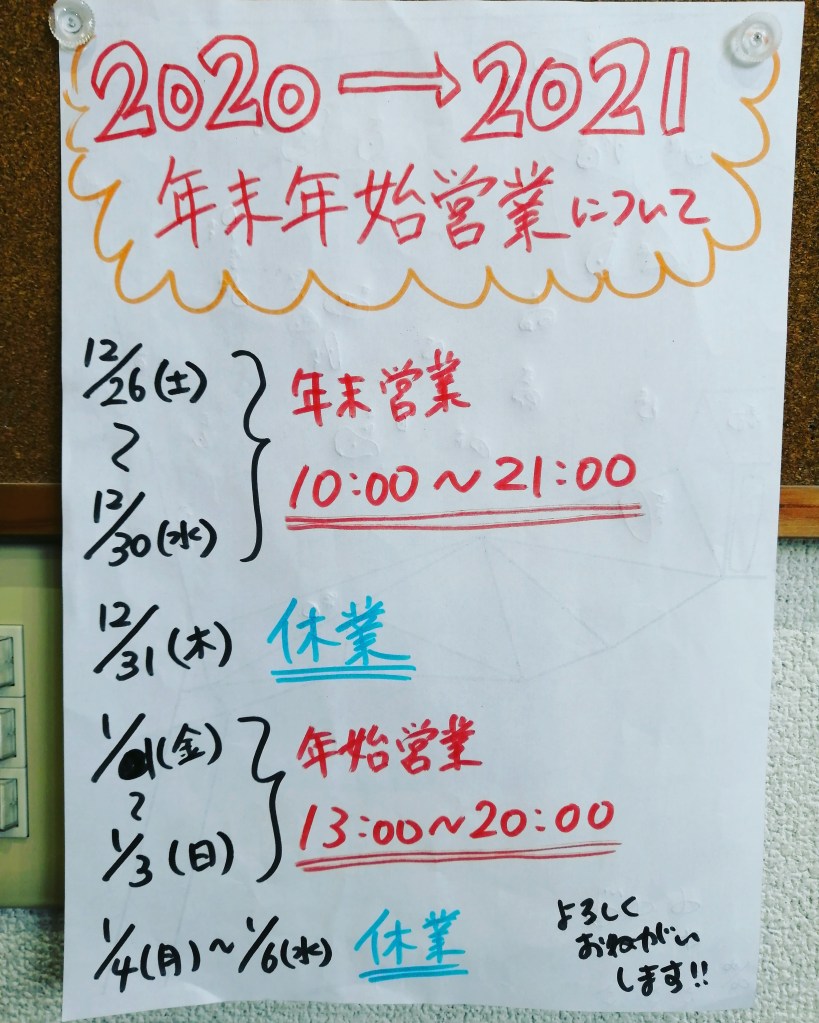 2020→2021
年末年始営業について
12/26(土)
〜
12/30(水)
年末営業
10:00〜21:00
12/31(木) 休業
1/1(金)
〜
1/3(日)
年始営業
13:00〜20:00
1/4(月)〜1/6(水) 休業
よろしく
おねがい
します!!